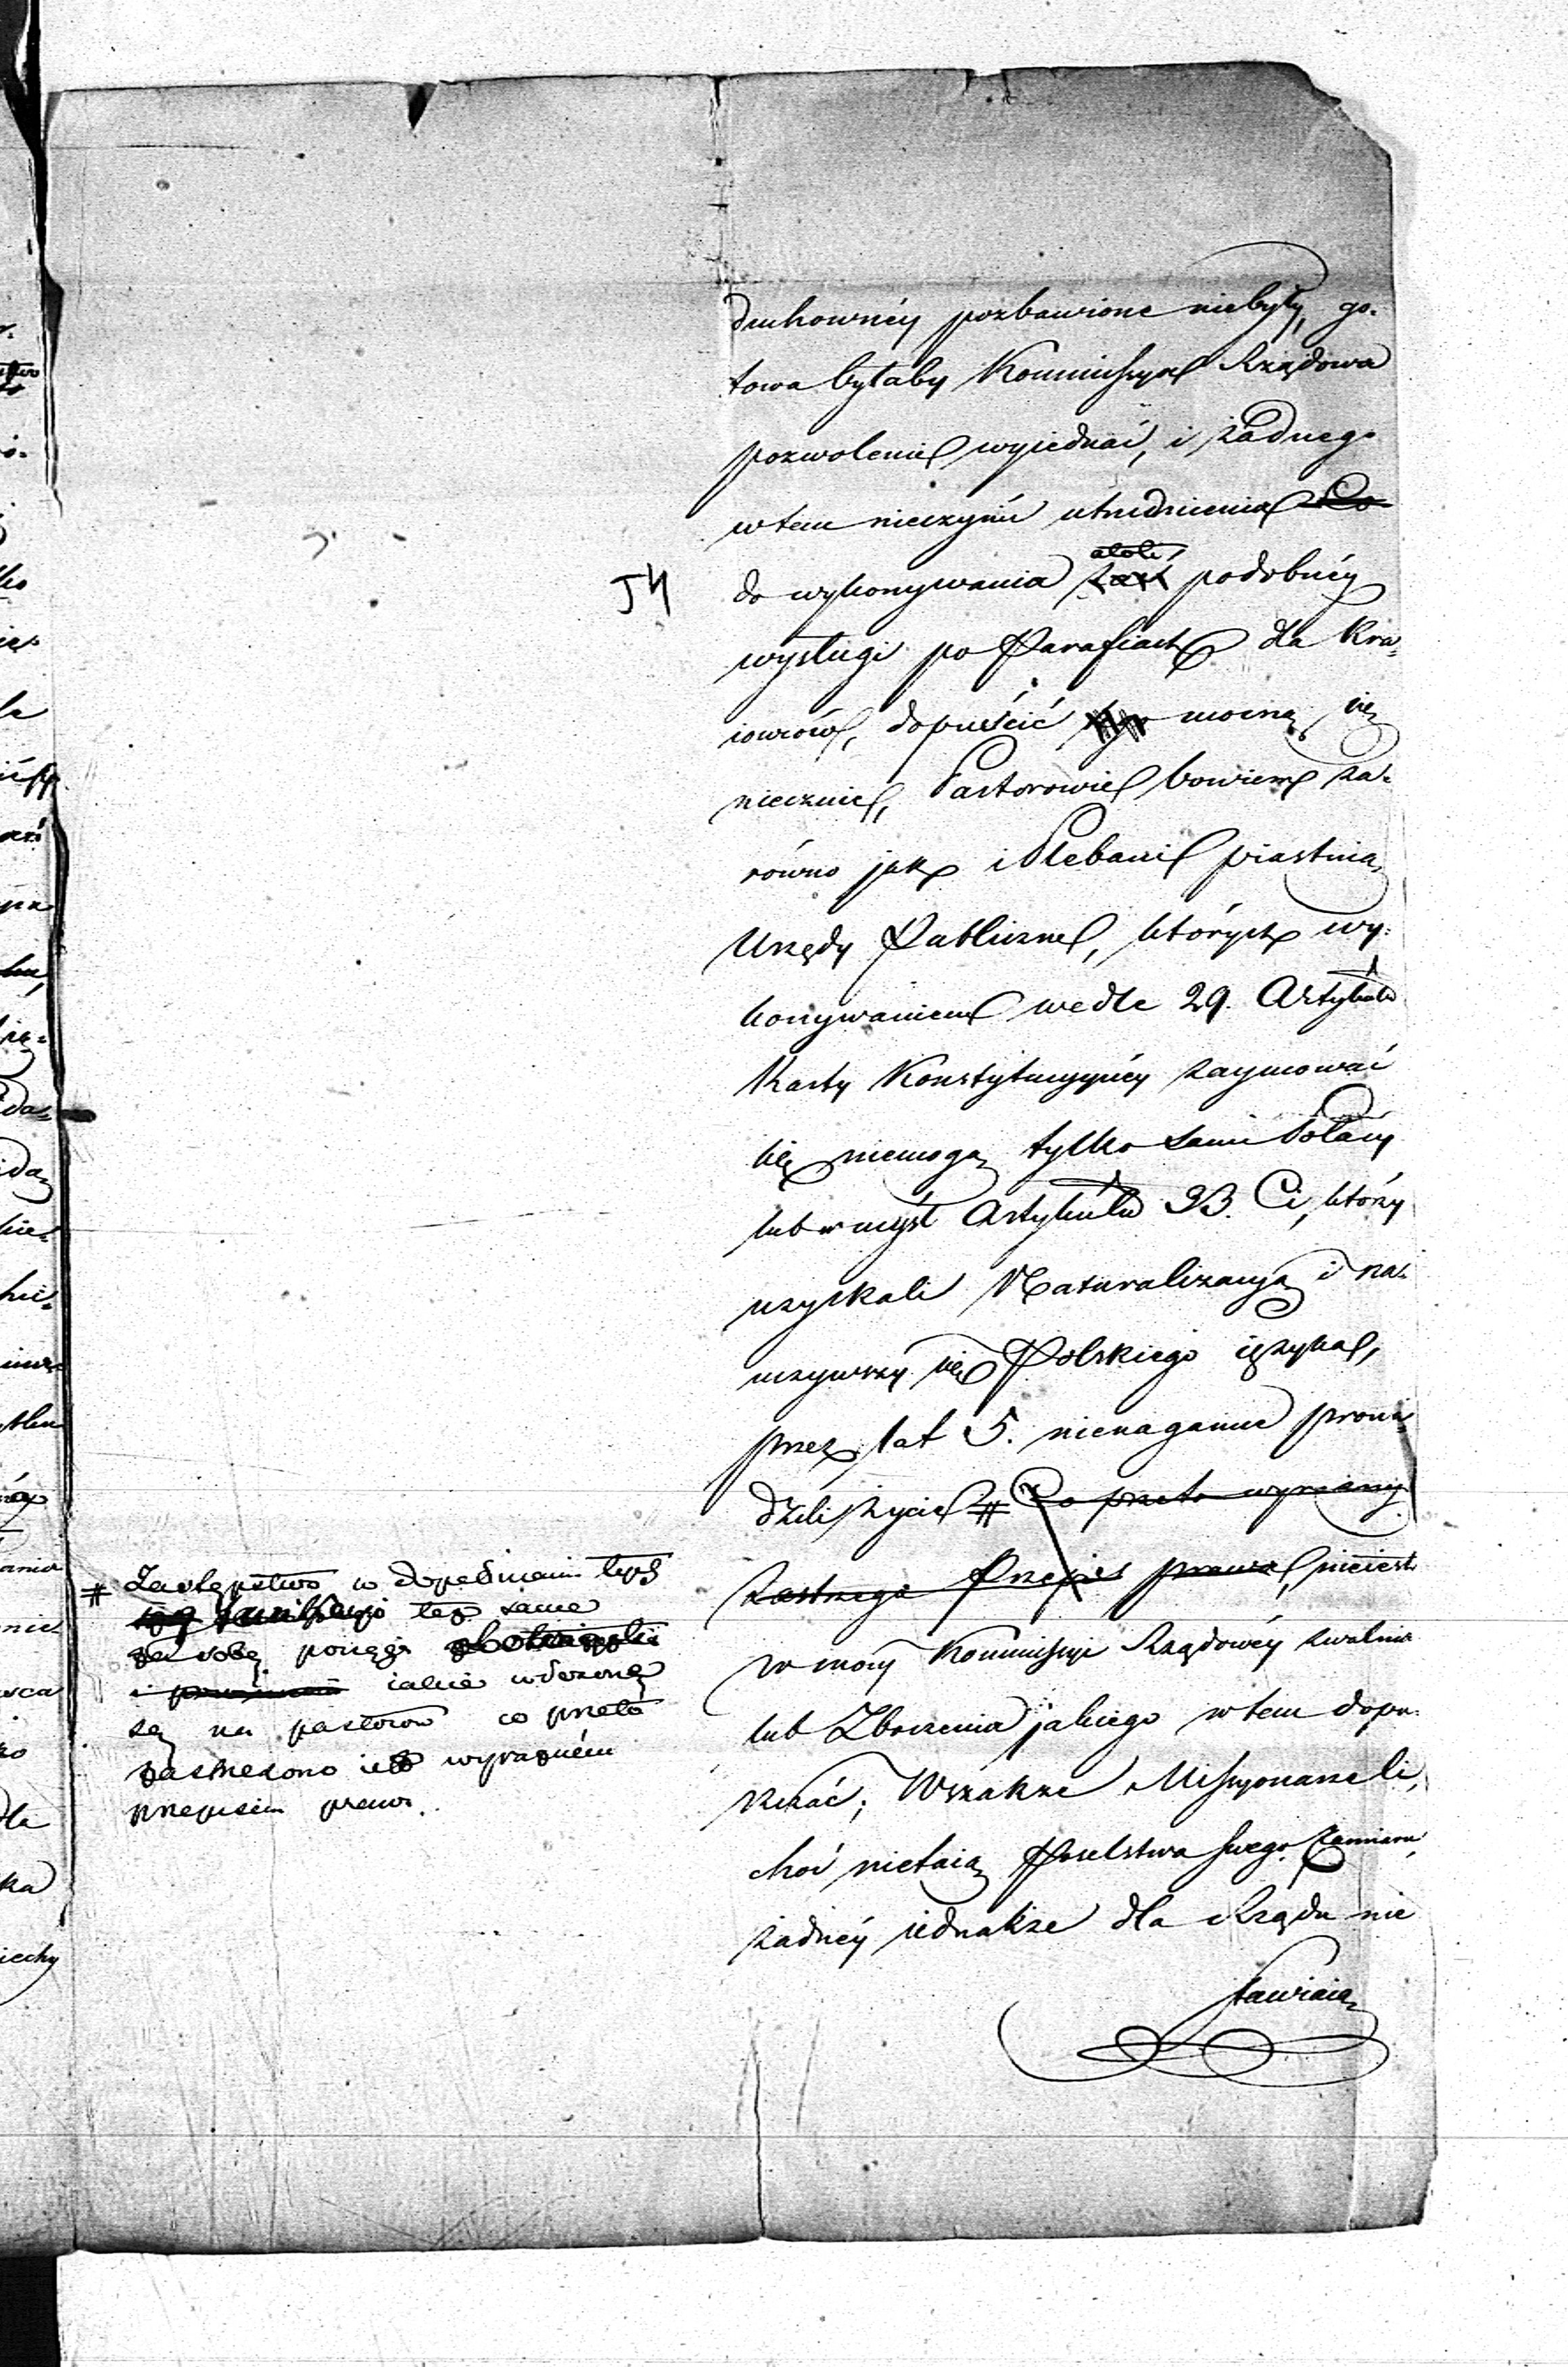 duchownéy pozbawione niebyły, go-
towa byłaby Kommissya Rządowa
pozwolenie wyiednać, i żadnego
w tem nieczynić utrudnienia Co
54
atoli
do wykonywania zaś podobnéy
wysługi po Parafiach dla Kra-
iowców, dopuścić mocną się
niecznie, Pastorowie bowiem za-
równo jak i Plebani piastuią
Urzędy Publiczne, których wy-
konywaniem wedle 29. Artykułu
Karty Konstytucyynéy zaymować
się niemogą tylko sami Polacy
lub w myśl Artykułu 33. Ci, którzy
uzyskali Naturalizacyą i na-
uczywszy się Polskiego ięzyka,
przez lat 5. nienaganne prowa-
dzili życie # Co przeto wyraźny
zastrzega Przepis prawa, nieiest
w mocy Kommissyi Rządowéy zwalniać
lub Zboczenia jakiego w tem dopu-
szczać; Wszakże Missyonarze ci,
choć nietaią Poselstwa swego Zamiaru,
żadnéy iednakże dla Rządu nie
stawiaią
# Zastępstwo w dopełnianiu tych
też same
za sobą pociąga
iakie włożone
są na pastorów co przeto
zastrzeżono iest wyraźném
przepisem prawa.